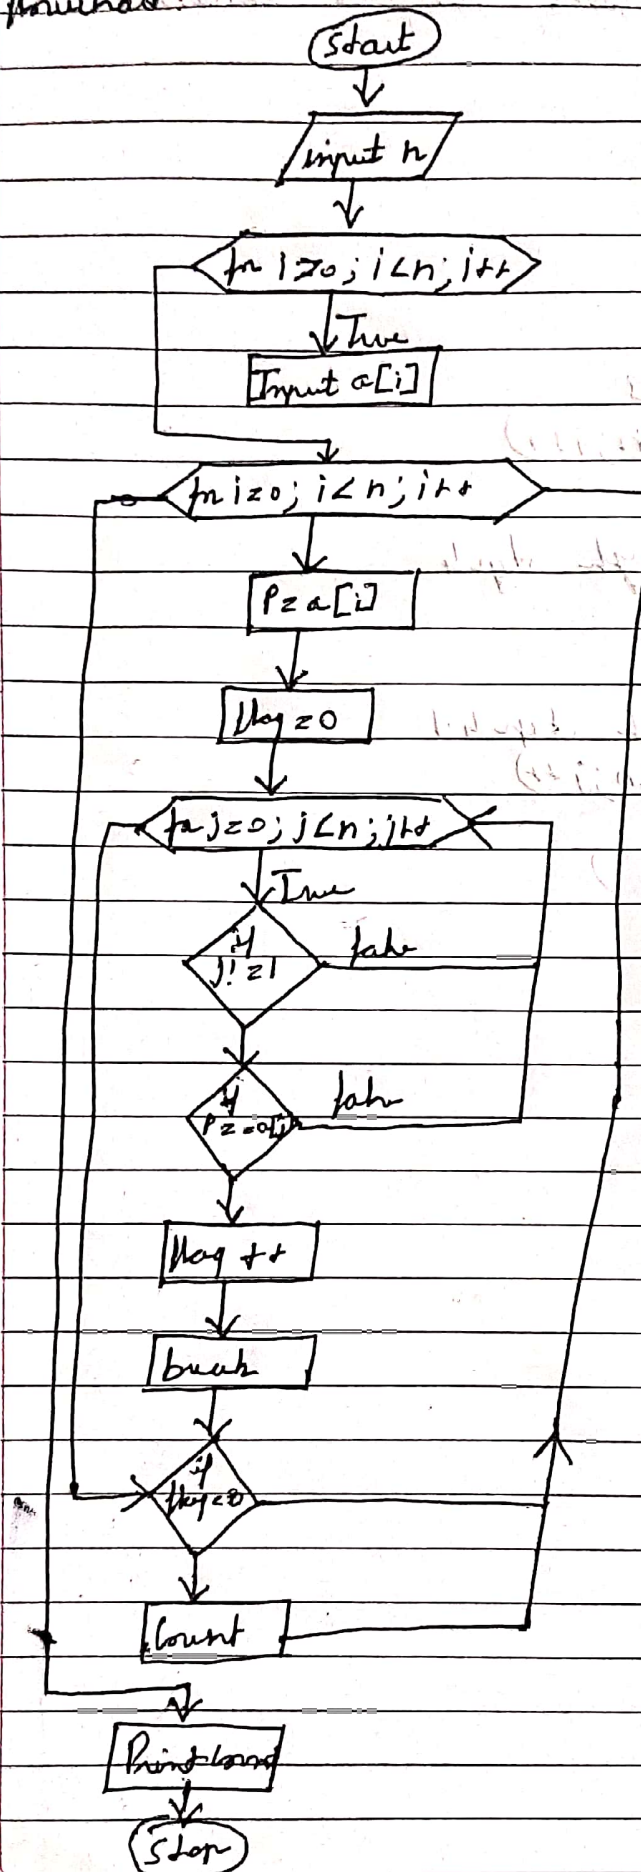 Start
input n
for i=0; i<n; i++
True
Input a[i]
for i=0; i<n; i++
P=a[i]
flag=0
for j=0; j<n; j++
True
if
j!=i
false
if
P==a[j]
false
flag ++
break
if
Count
Print count
Stop